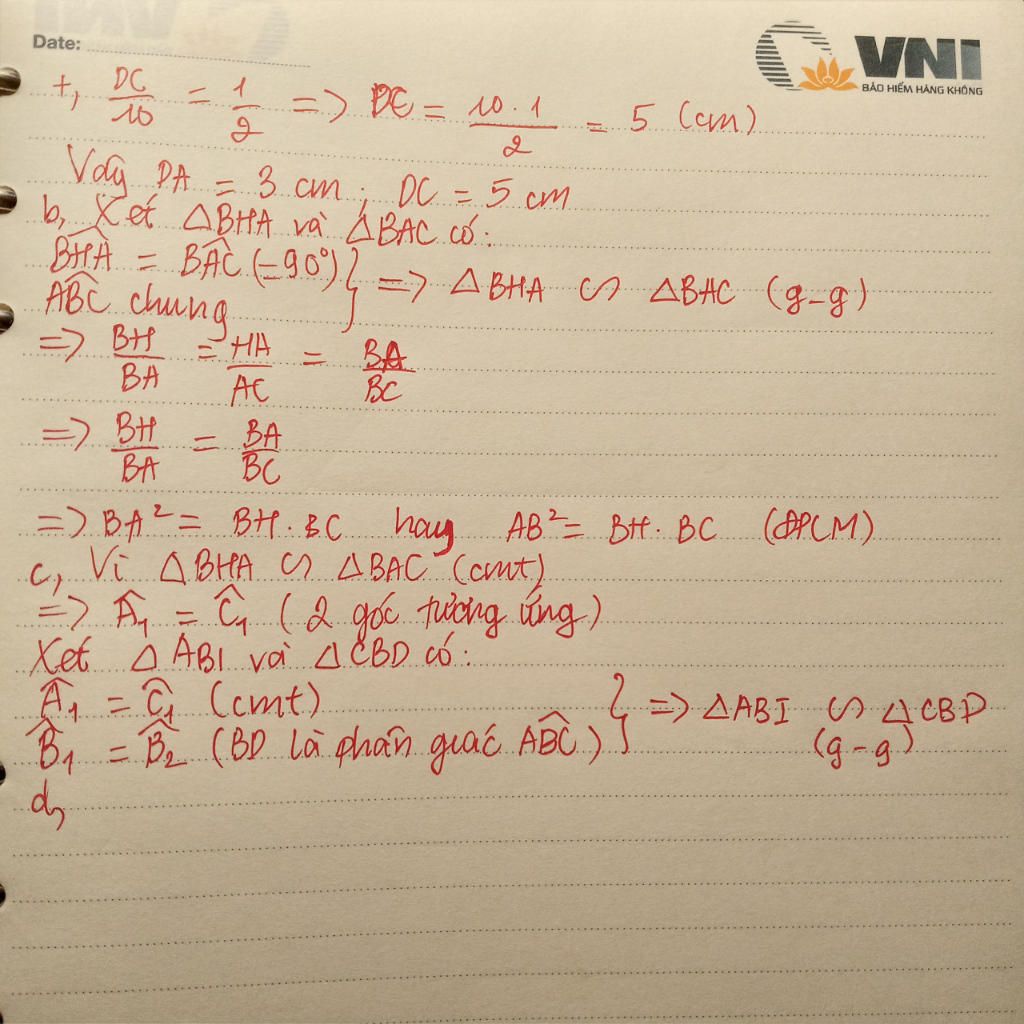 Date:
VNI
BẢO HIỂM HÀNG KHÔNG
+, DC/10 = 1/2 => DC = 10.1/2 = 5 (cm)
Vậy DA = 3 cm; DC = 5 cm
b, Xét △BHA và △BAC có:
BHA^ = BAC^ (=90°) } => △BHA ∽ △BAC (g-g)
ABC^ chung
=> BH/BA = HA/AC = BA/BC
=> BH/BA = BA/BC
=> BA² = BH.BC hay AB² = BH.BC (ĐPCM)
c, Vì △BHA ∽ △BAC (cmt)
=> Â₁ = Ĉ₁ (2 góc tương ứng)
Xét △ABI và △CBD có:
Â₁ = Ĉ₁ (cmt) } => △ABI ∽ △CBD
B̂₁ = B̂₂ (BD là phân giác ABC^) (g-g)
d,